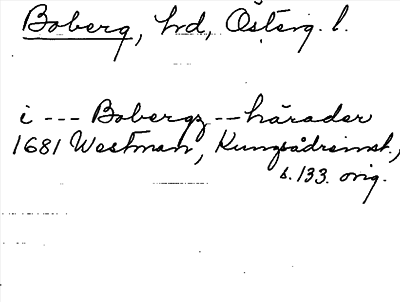 Boberg, hrd, Österg. l.
i --- Bobergz -- härader
1681 Westman, Kungsådreinst.,
s. 133. orig.